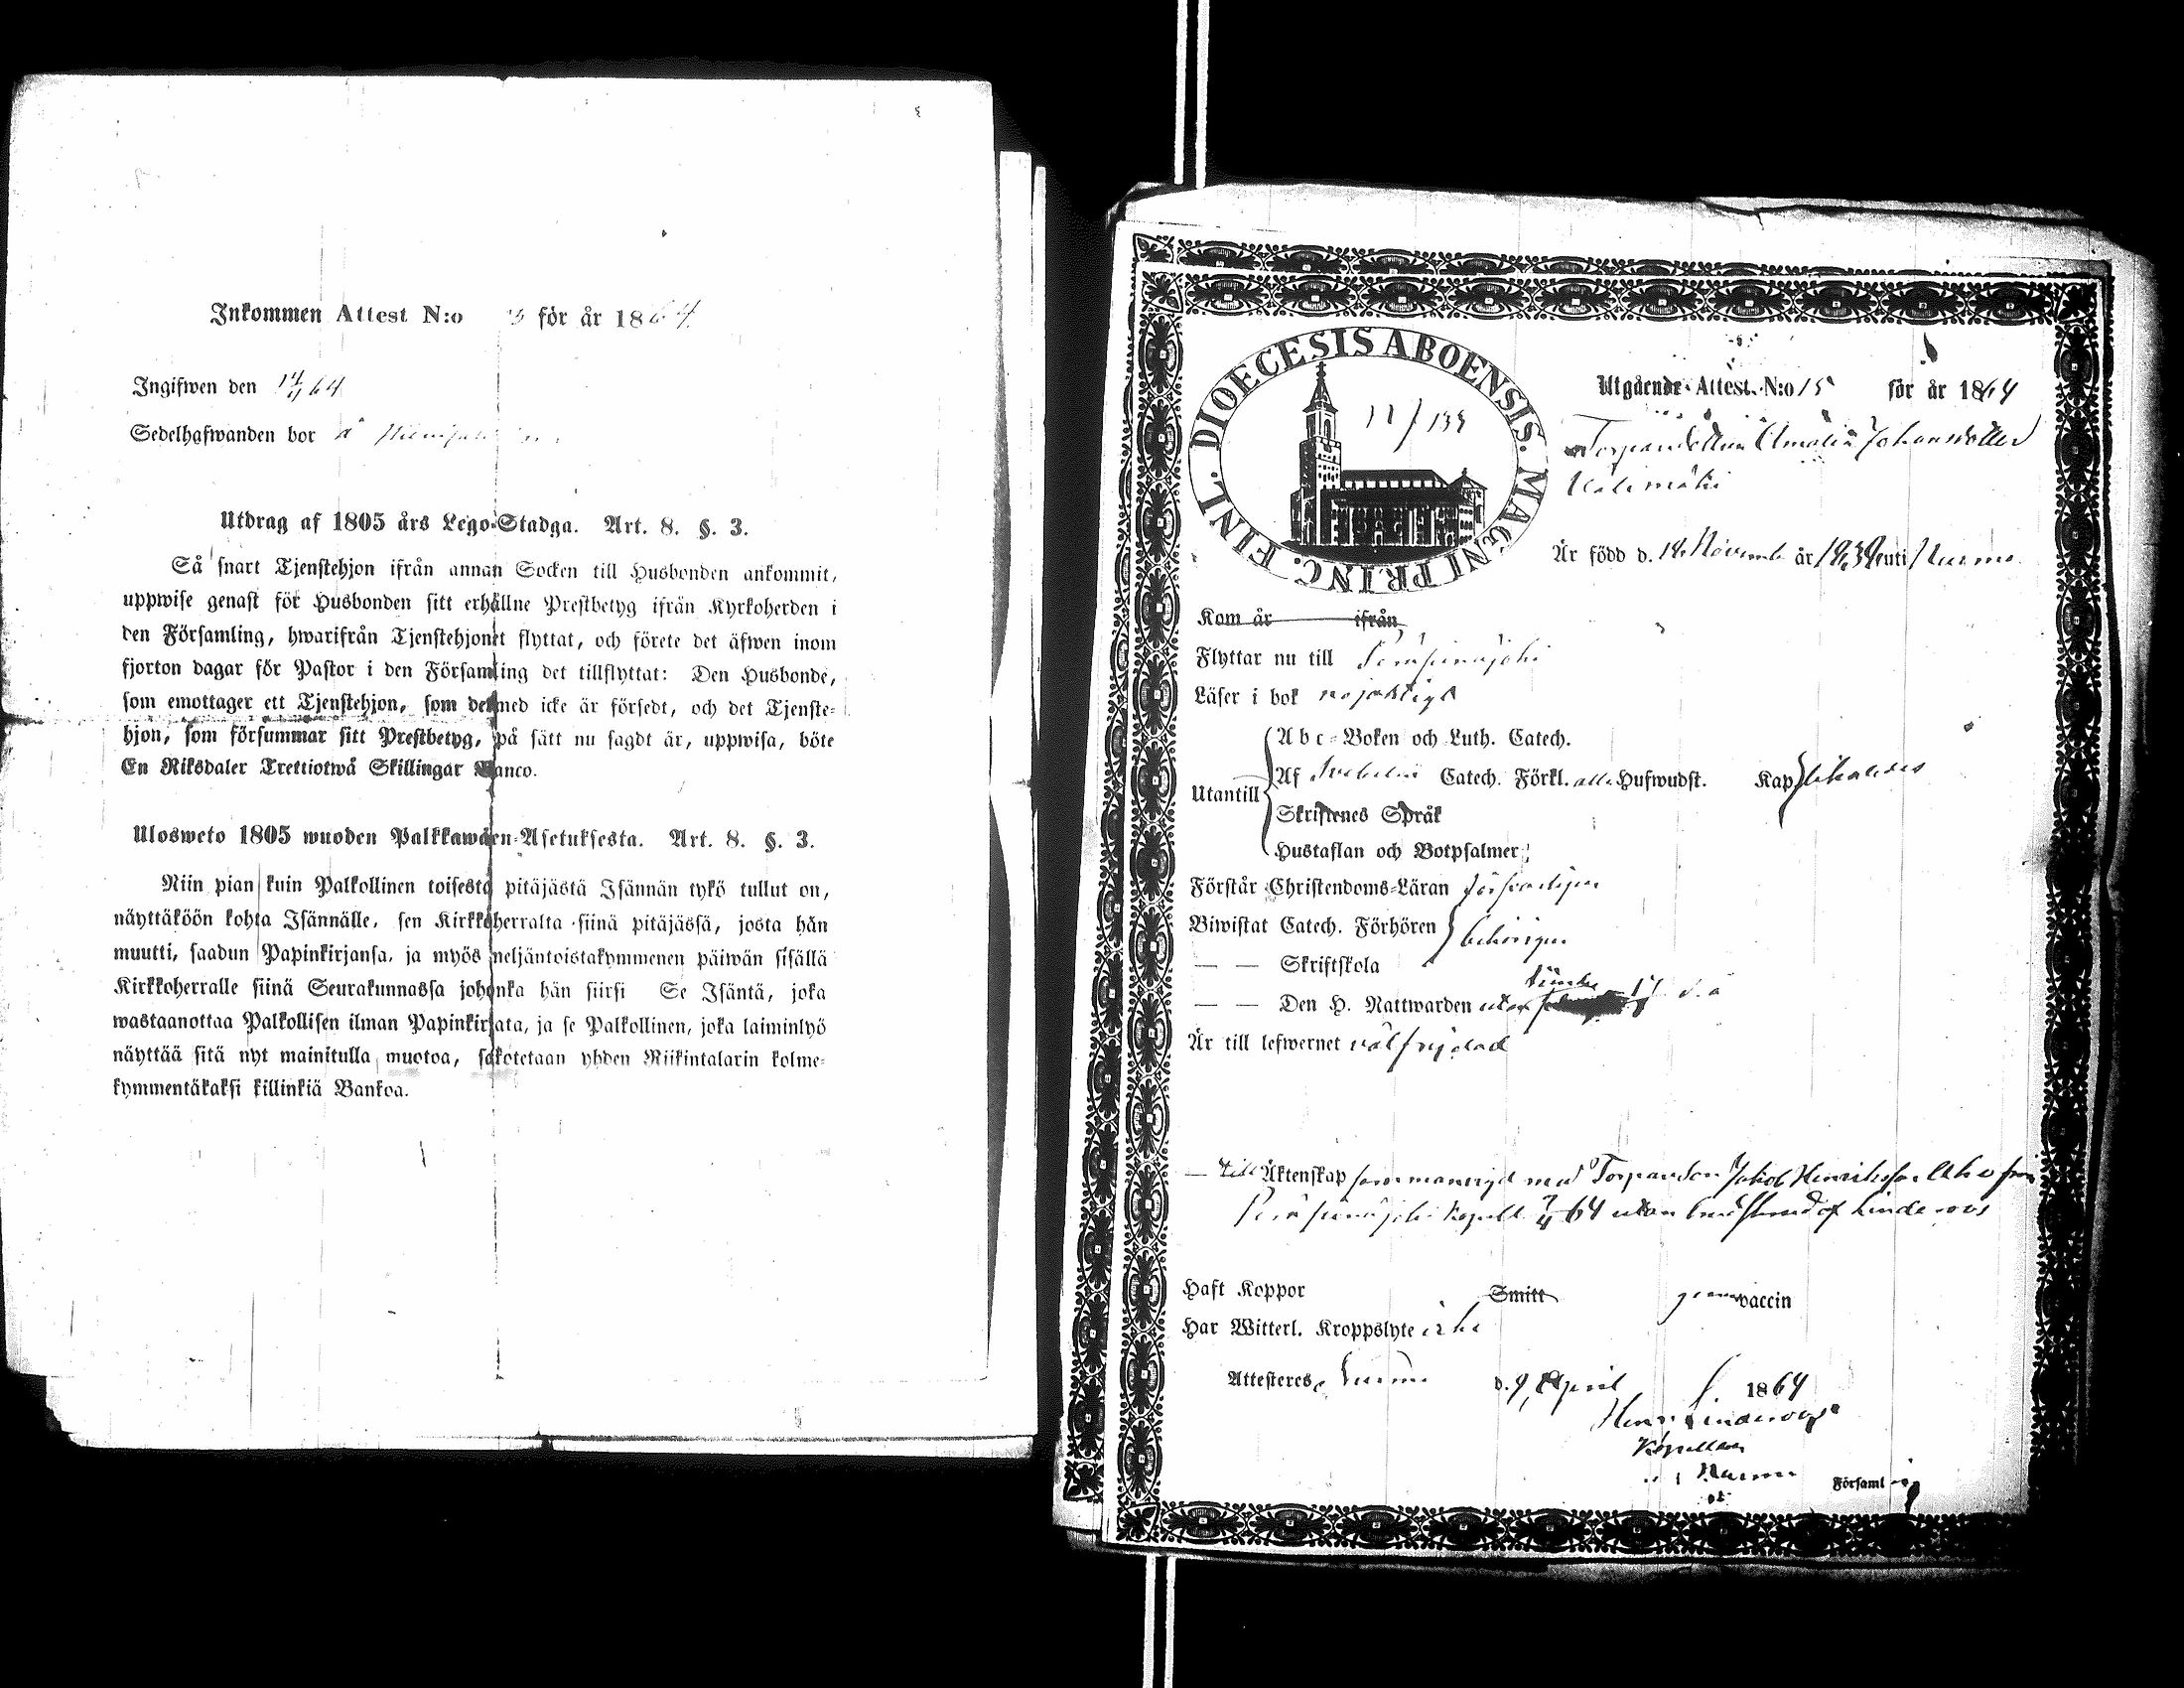 Inkommen Attest N:o 3 för år 1864.
Ingifwen den 14/4 64
Sedelhafwanden bor å
Utdrag af 1805 års Lego-Stadga. Art. 8. §. 3.
Så snart Tjenstehjon ifrån annan Socken till Husbonden ankommit,
uppwise genast för Husbonden sitt erhållne Prestbetyg ifrån Kyrkoherden i
den Församling, hwarifrån Tjenstehjonet flyttat, och förete det äfwen inom
fjorton dagar för Pastor i den Församling det tillflyttat: Den Husbonde,
som emottager ett Tjenstehjon, som dermed icke är försedt, och det Tjenste-
hjon, som försummar sitt Prestbetyg, på sätt nu sagdt är, uppwisa, böte
En Riksdaler Trettiotwå Skillingar Banco.
Ulosweto 1805 wuoden Palkkawäen-Asetuksesta. Art. 8. §. 3.
Niin pian kuin Palkollinen toisesta pitäjästä Isännän tykö tullut on,
näyttäköön kohta Isännälle, sen Kirkkoherralta siinä pitäjässä, josta hän
muutti, saadun Papinkirjansa, ja myös neljäntoistakymmenen päiwän sisällä
Kirkkoherralle siinä Seurakunnassa johonka hän siirsi Se Isäntä, joka
wastaanottaa Palkollisen ilman Papinkirjata, ja se Palkollinen, joka laiminlyö
näyttää sitä nyt mainitulla muotoa, sakotetaan yhden Riikintalarin kolme-
kymmentäkaksi killinkiä Bankoa.
DIOECESIS ABOENSIS. MAGNI PRINC. FINL.
Utgående Attest. N:o 15 för år 1864
Torpardottren Amalia Johansdotter
Är född d. 18 Novemb år 1839 uti Nurmo
Kom år ifrån
Flyttar nu till Peräseinäjoki
Läser i bok nöjaktigt
Abc-Boken och Luth. Catech.
Utantill Af Svebelii Catech. Förkl. alla Hufwudst. Kap
Skriftenes Språk
Hustaflan och Botpsalmer
Förstår Christendoms-Läran försvarligen
Biwistat Catech. Förhören behörigen
— — Skriftskola
— — Den H. Nattwarden
Är till lefwernet välfrejdad
— till Äktenskap sammanvigd med Torparsson Jakob Henriksson Aho från
Peräseinäjoki Kapell 64 utan af Linderoos
Haft Koppor Smitt vaccin
Har Witterl. Kroppslyte icke
Attesteres, Nurmo d. 9 April 1864
Henr. Linderoos
Kapellan
i Nurmo Församling